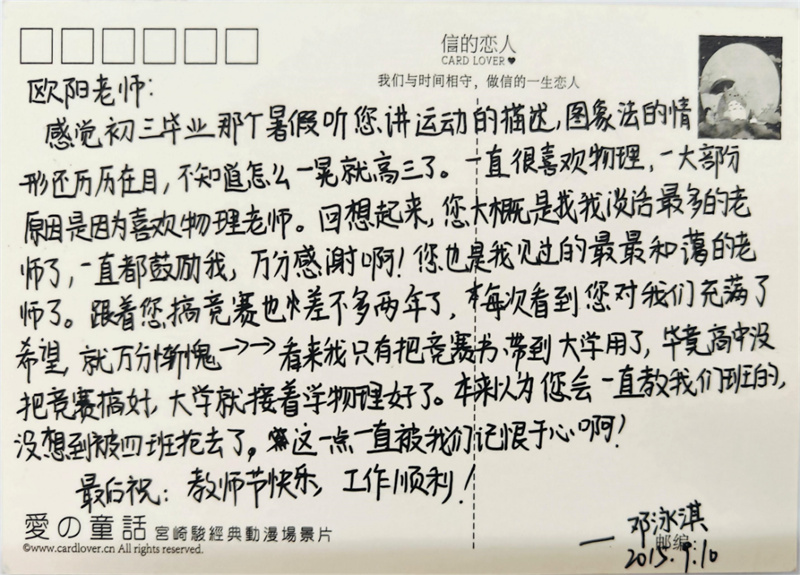 信的恋人
CARD LOVER♥
我们与时间相守，做信的一生恋人
欧阳老师：
感觉初三毕业那个暑假听您讲运动的描述，图象法的情
形还历历在目，不知道怎么一晃就高三了。一直很喜欢物理，一大部份
原因是因为喜欢物理老师。回想起来，您大概是找我谈话最多的老
师了，一直都鼓励我，万分感谢啊！您也是我见过的最最和蔼的老
师了。跟着您搞竞赛也快差不多两年了，每次看到您对我们充满了
希望，就万分惭愧→→看来我只有把竞赛书带到大学用了，毕竟高中没
把竞赛搞好，大学就接着学物理好了。本来以为您会一直教我们班的，
没想到被四班抢去了，这一点一直被我们记恨于心啊！
最后祝：教师节快乐，工作顺利！
愛の童話 宮崎駿經典動漫場景片
©www.cardlover.cn All rights reserved.
邮编：
—邓泳淇
2015.9.10